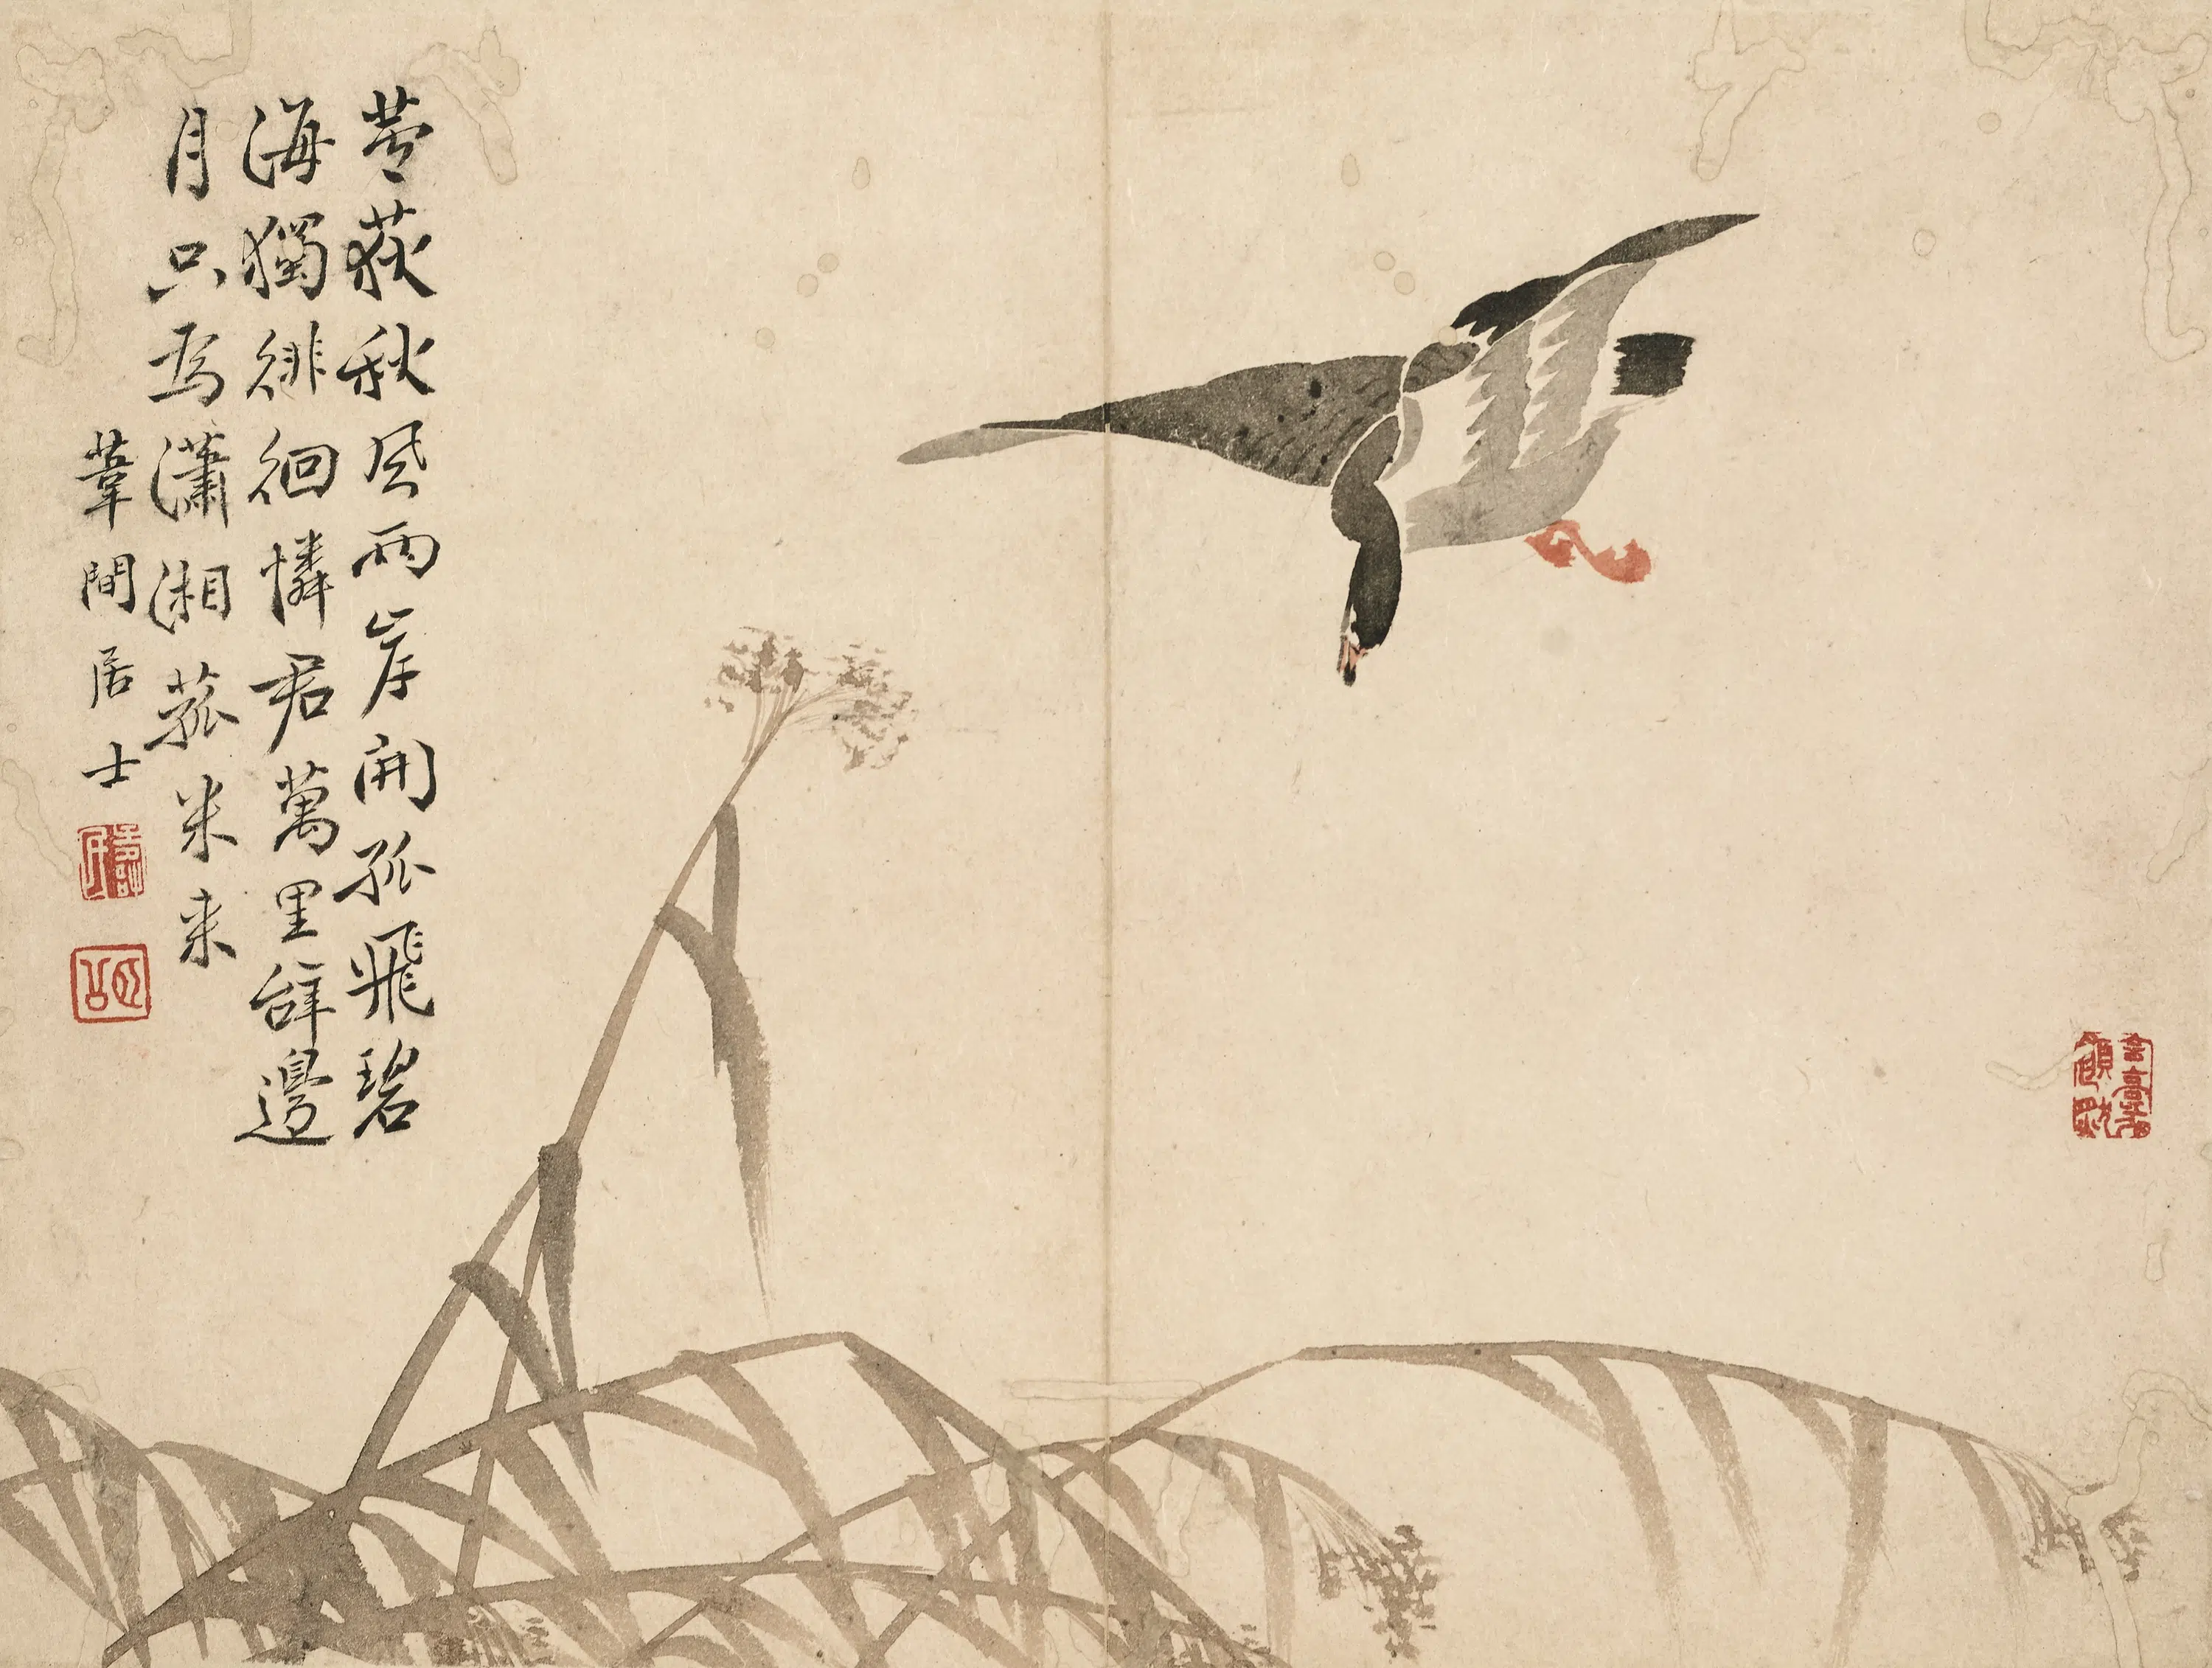 荻秋風兩岸開孤飛碧
海獨徘徊憐君萬里辭邊
月只為瀟湘菰米来
葦間居士